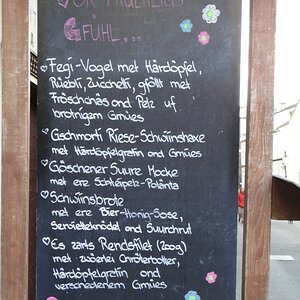 GFÜHL...
♡ Fegi-Vogel met Härdöpfel,
Rüebli, Zucchetti, gföllt met
Fröschchäs ond Pelz uf
brotnigem Gmües
♡ Gschmorti Riese-Schwiinshaxe
met Härdöpfelgratin ond Gmües
♡ Göschener Suure Mocke
met ere Schteipelz-Polänta
♡ Schwiinsbrote
met ere Bier-Honig-Sose,
Serviettleknödel and Suurchrut
♡ Es zarts Rendsfilet (200g)
met zwöierlei Chröterbotter,
Härdöpfelgratin ond
verschedenem Gmües